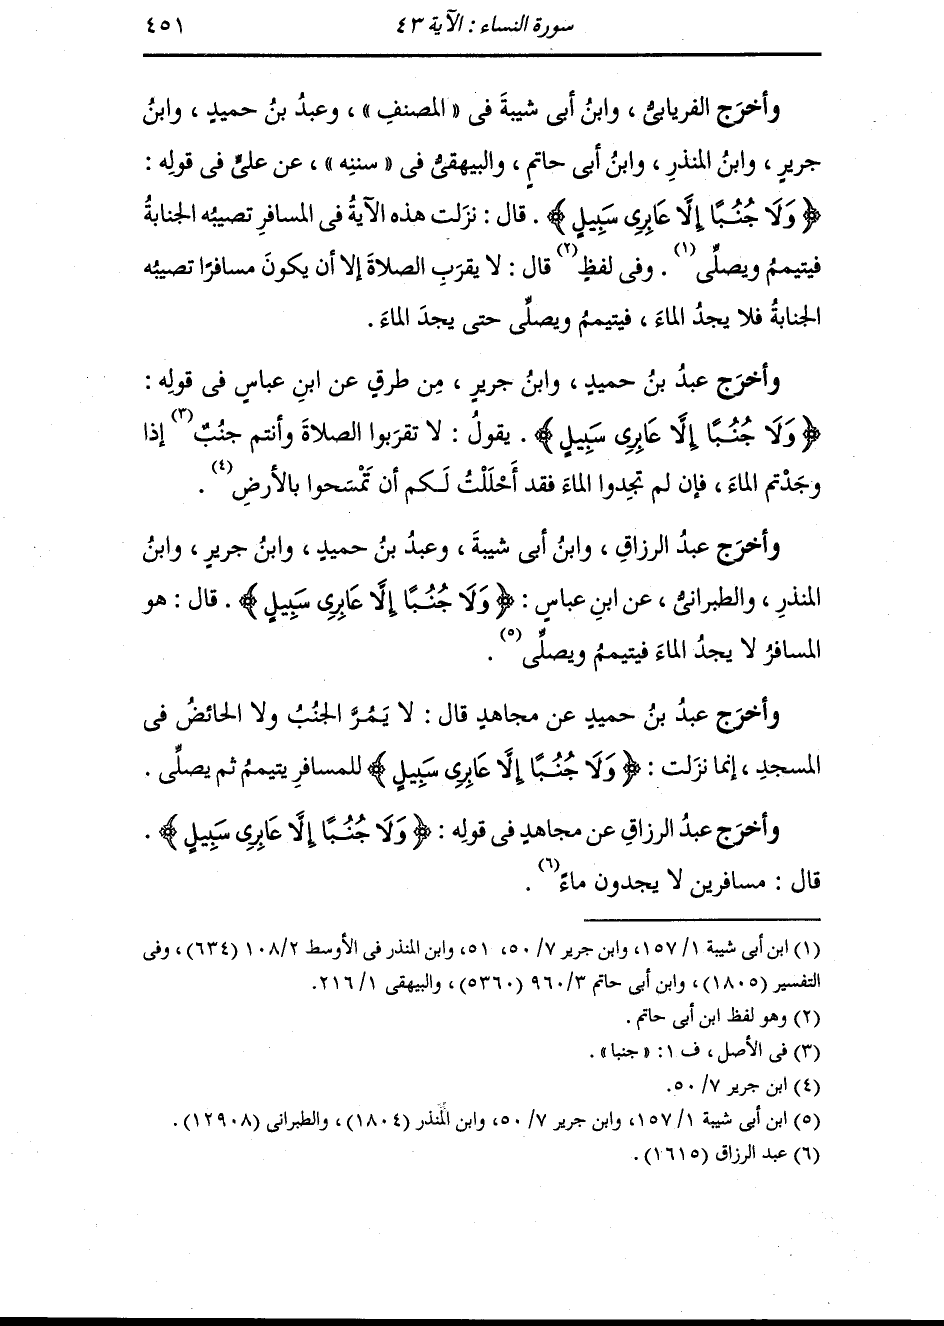 سورة النساء : الآية ٤٣
٤٥١
وأخرَج الفريابىُّ ، وابنُ أبى شيبةَ فى « المصنفِ » ، وعبدُ بنُ حميدٍ ، وابنُ
جريرٍ ، وابنُ المنذرِ ، وابنُ أبى حاتمٍ ، والبيهقىُّ فى « سننِه » ، عن علىٍّ فى قولِه :
﴿ وَلَا جُنُبًا إِلَّا عَابِرِى سَبِيلٍ ﴾ . قال : نزَلت هذه الآيةُ فى المسافرِ تصيبُه الجنابةُ
فيتيممُ ويصلِّى(١) . وفى لفظٍ(٢) قال : لا يقرَبِ الصلاةَ إلا أن يكونَ مسافرًا تصيبُه
الجنابةُ فلا يجدُ الماءَ ، فيتيممُ ويصلِّى حتى يجدَ الماءَ .
وأخرَج عبدُ بنُ حميدٍ ، وابنُ جريرٍ ، مِن طرقٍ عن ابنِ عباسٍ فى قولِه :
﴿ وَلَا جُنُبًا إِلَّا عَابِرِى سَبِيلٍ ﴾ . يقولُ : لا تقرَبوا الصلاةَ وأنتم جنُبٌ(٣) إذا
وجَدْتم الماءَ ، فإن لم تجِدوا الماءَ فقد أَحْلَلْتُ لَكم أن تَمْسَحوا بالأرضِ(٤) .
وأخرَج عبدُ الرزاقِ ، وابنُ أبى شيبةَ ، وعبدُ بنُ حميدٍ ، وابنُ جريرٍ ، وابنُ
المنذرِ ، والطبرانىُّ ، عن ابنِ عباسٍ : ﴿ وَلَا جُنُبًا إِلَّا عَابِرِى سَبِيلٍ ﴾ . قال : هو
المسافرُ لا يجدُ الماءَ فيتيممُ ويصلِّى(٥) .
وأخرَج عبدُ بنُ حميدٍ عن مجاهدٍ قال : لا يَمُرَّ الجنُبُ ولا الحائضُ فى
المسجدِ ، إنما نزَلت : ﴿ وَلَا جُنُبًا إِلَّا عَابِرِى سَبِيلٍ ﴾ للمسافرِ يتيممُ ثم يصلِّى .
وأخرَج عبدُ الرزاقِ عن مجاهدٍ فى قولِه : ﴿ وَلَا جُنُبًا إِلَّا عَابِرِى سَبِيلٍ ﴾ .
قال : مسافرين لا يجدون ماءً(٦) .
(١) ابن أبى شيبة ١/ ١٥٧، وابن جرير ٧/ ٥٠، ٥١، وابن المنذر فى الأوسط ١٠٨/٢ (٦٣٤) ، وفى
التفسير (١٨٠٥) ، وابن أبى حاتم ٩٦٠/٣ (٥٣٦٠) ، والبيهقى ١/ ٢١٦.
(٢) وهو لفظ ابن أبى حاتم .
(٣) فى الأصل ، ف ١: « جنبا » .
(٤) ابن جرير ٧/ ٥٠.
(٥) ابن أبى شيبة ١/ ١٥٧، وابن جرير ٧/ ٥٠، وابن المنذر (١٨٠٤) ، والطبرانى (١٢٩٠٨) .
(٦) عبد الرزاق (١٦١٥) .